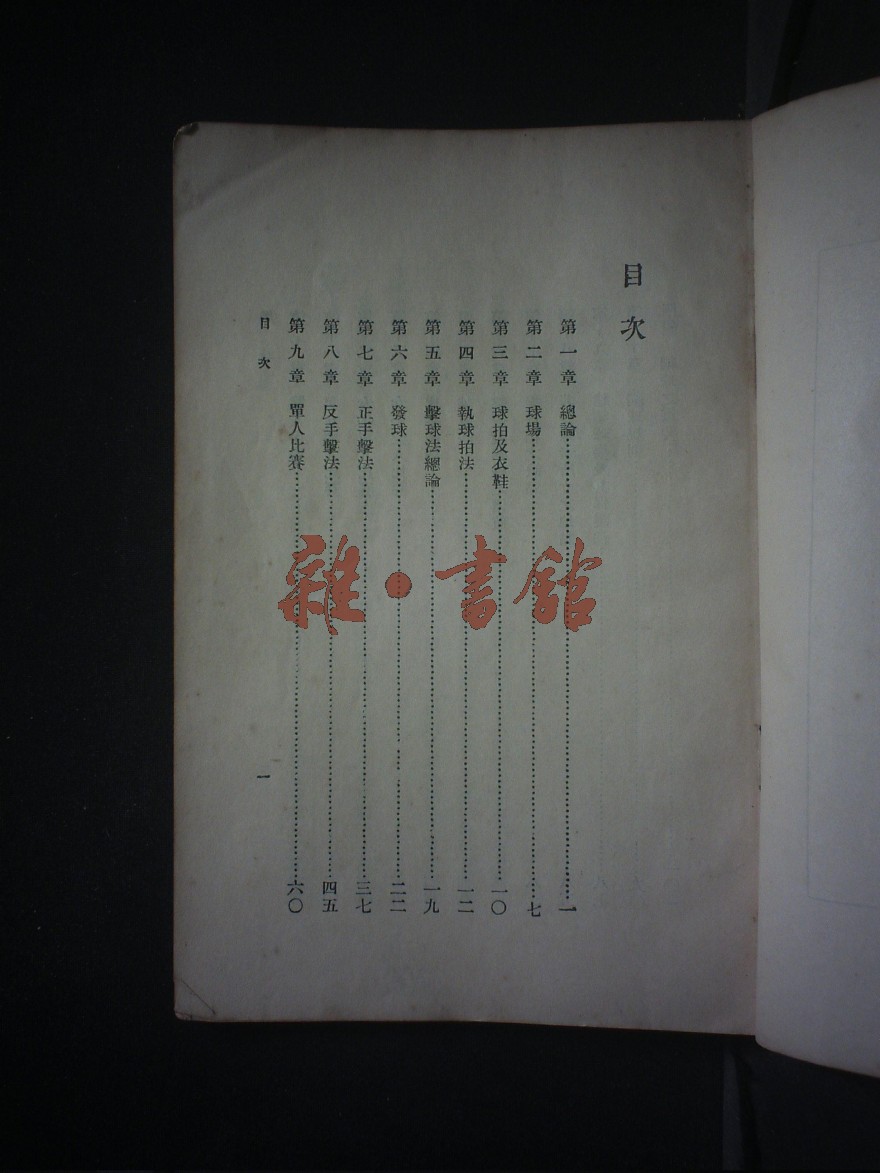 目次
第一章 總論………一
第二章 球場………七
第三章 球拍及衣鞋………一〇
第四章 執球拍法………一二
第五章 擊球法總論………一九
第六章 發球………二二
第七章 正手擊法………三七
第八章 反手擊法………四五
第九章 單人比賽………六〇
目次 一
雜·書館